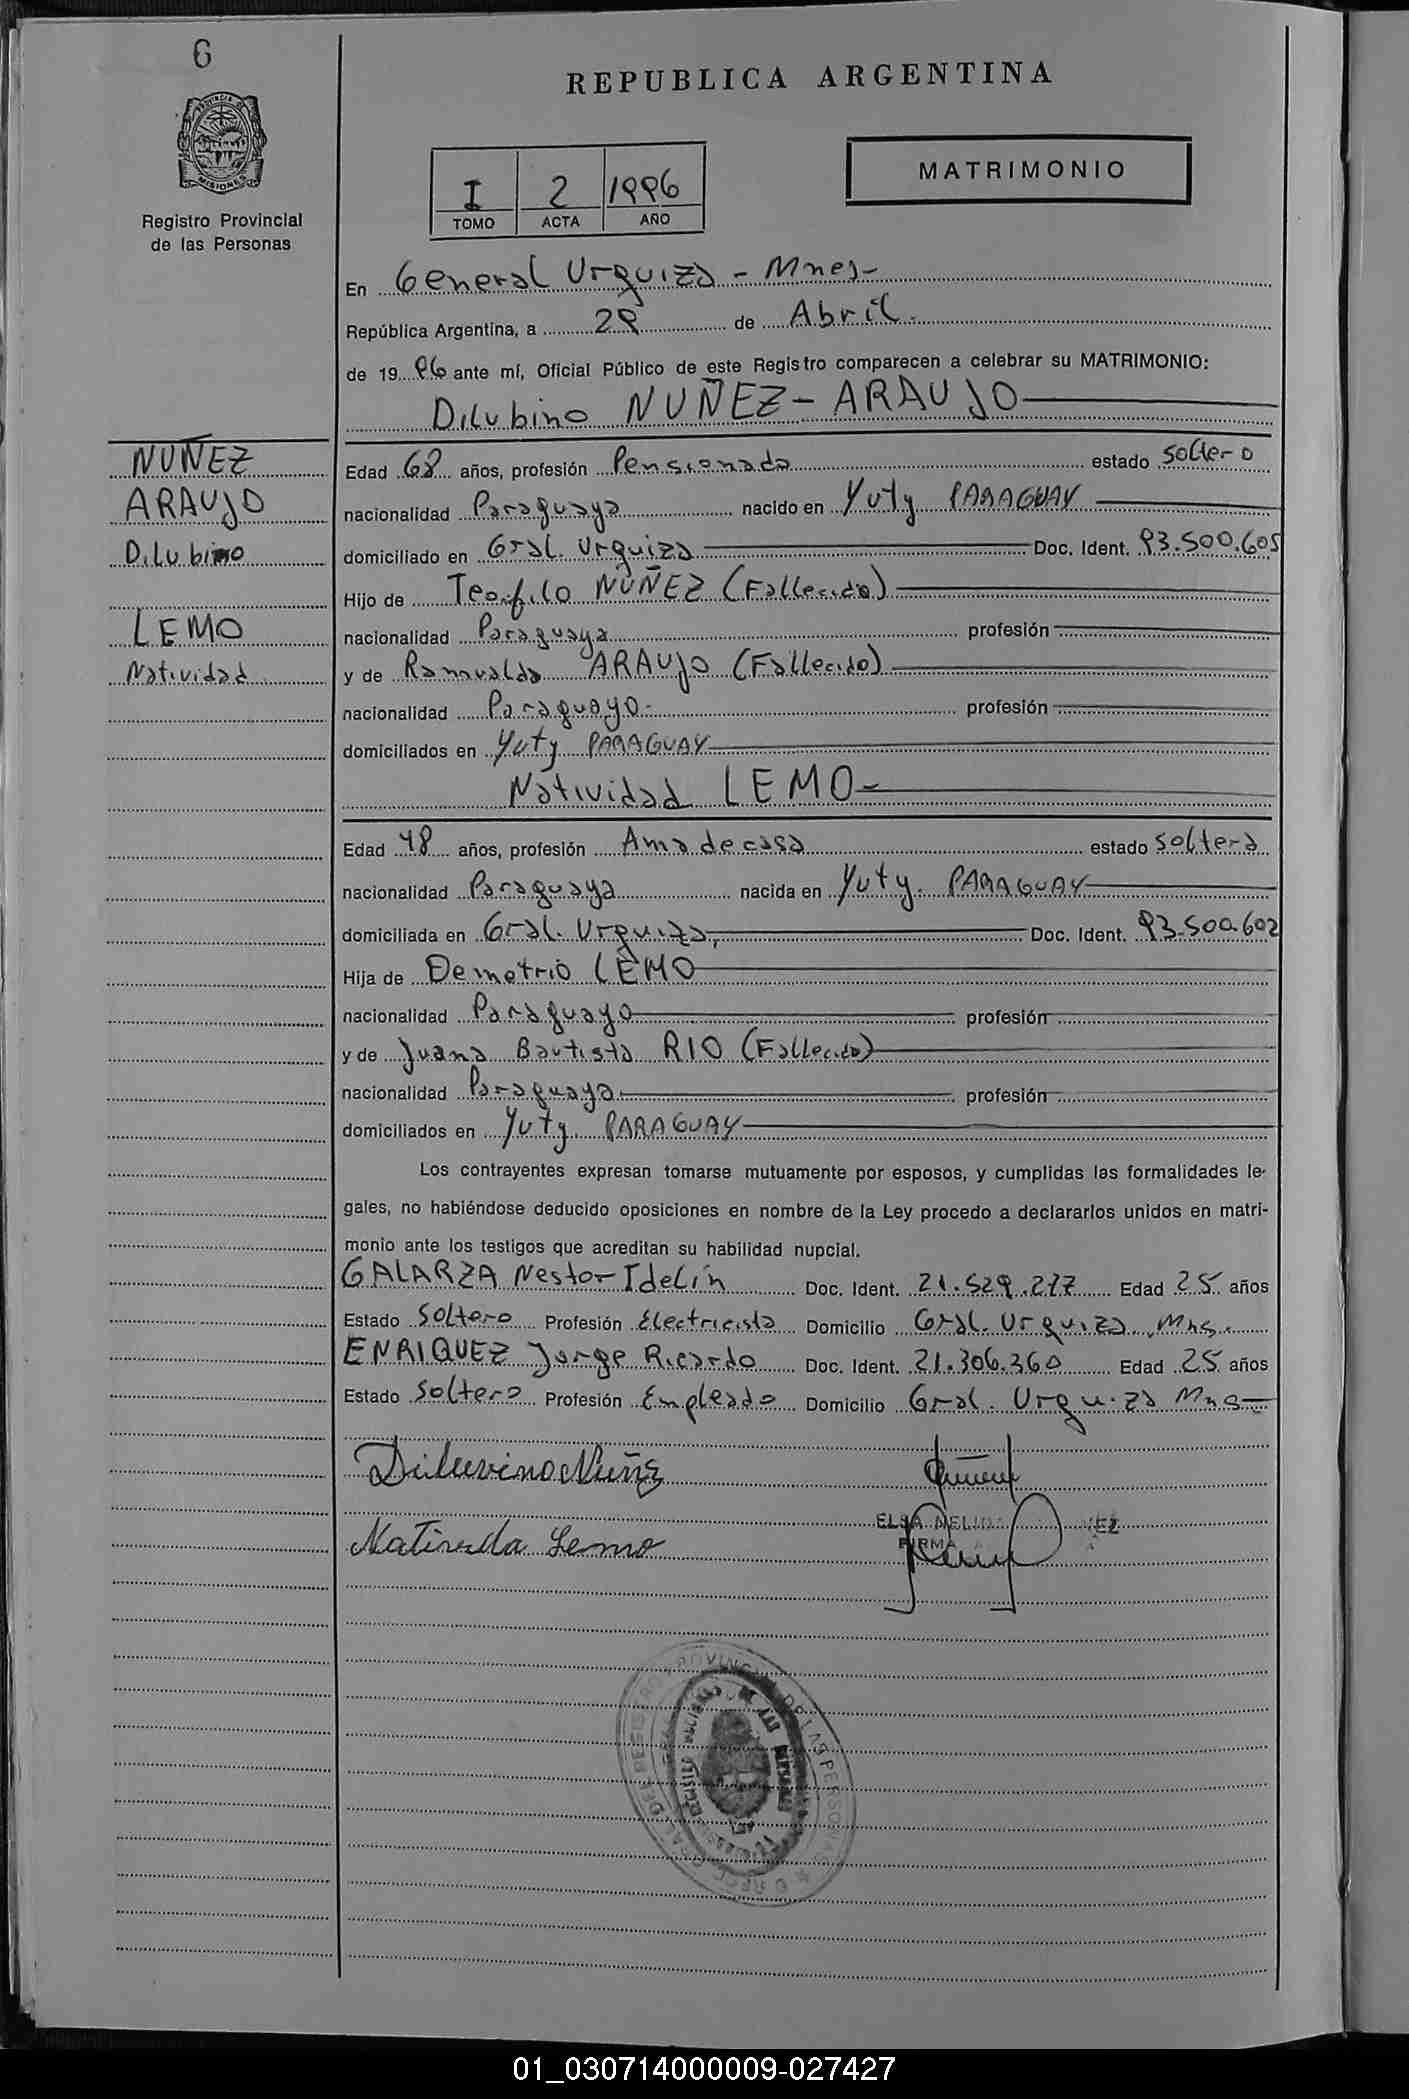 6
REPUBLICA ARGENTINA
PROVINCIA DE
MISIONES
Registro Provincial
de las Personas
I 2 1996
TOMO ACTA AÑO
MATRIMONIO
En General Urquiza - Mnes-
República Argentina, a 29 de Abril.
de 19 96 ante mí, Oficial Público de este Registro comparecen a celebrar su MATRIMONIO:
Dilubino NUÑEZ - ARAUJO
NUÑEZ
ARAUJO
Dilubino
LEMO
Natividad
Edad 68 años, profesión Pensionado estado soltero
nacionalidad Paraguaya nacido en Yuty PARAGUAY
domiciliado en Gral. Urquiza Doc. Ident. 93.500.605
Hijo de Teofilo NUÑEZ (Fallecido)
nacionalidad Paraguaya profesión
y de Ramualda ARAUJO (Fallecido)
nacionalidad Paraguayo- profesión
domiciliados en Yuty PARAGUAY
Natividad LEMO-
Edad 48 años, profesión Ama de casa estado soltera
nacionalidad Paraguaya nacida en Yuty. PARAGUAY
domiciliada en Gral. Urquiza, Doc. Ident. 93.500.602
Hija de Demetrio LEMO
nacionalidad Paraguayo profesión
y de Juana Bautista RIO (Fallecido)
nacionalidad Paraguaya profesión
domiciliados en Yuty PARAGUAY
Los contrayentes expresan tomarse mutuamente por esposos, y cumplidas las formalidades le-
gales, no habiéndose deducido oposiciones en nombre de la Ley procedo a declararlos unidos en matri-
monio ante los testigos que acreditan su habilidad nupcial.
GALARZA Nestor Idelín Doc. Ident. 21.529.277 Edad 25 años
Estado Soltero Profesión Electricista Domicilio Gral. Urquiza Mns.
ENRIQUEZ Jorge Ricardo Doc. Ident. 21.306.360 Edad 25 años
Estado Soltero Profesión Empleado Domicilio Gral. Urquiza Mns
Diluvino Nuñz
ELSA NELIDA
FIRMA
Natividа Lemo
01_030714000009-027427